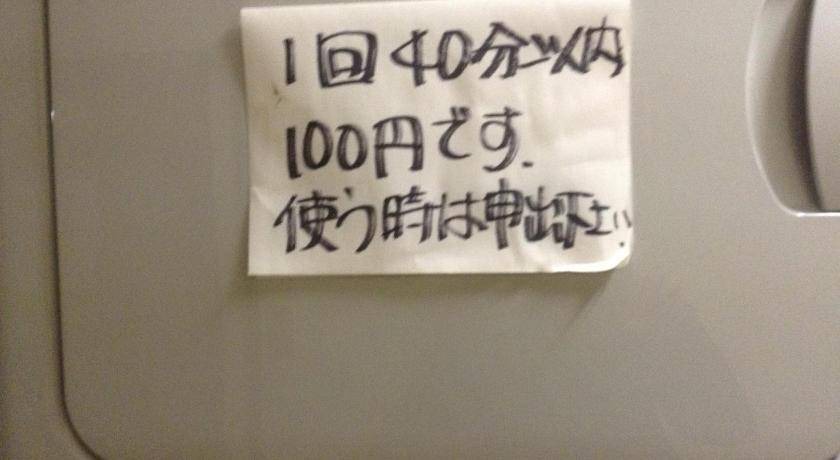 1回40分以内
100円です.
使う時は申出下さい.